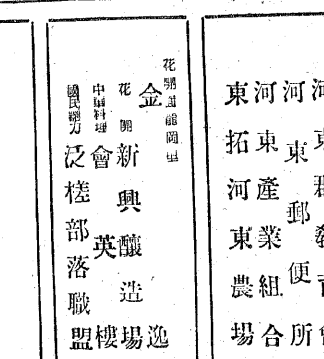 河東郵便所
河東產業組合
東拓河東農場
金 逸
花開 新興釀造場
中華料理 會英樓
國民總力 泛槎部落職盟